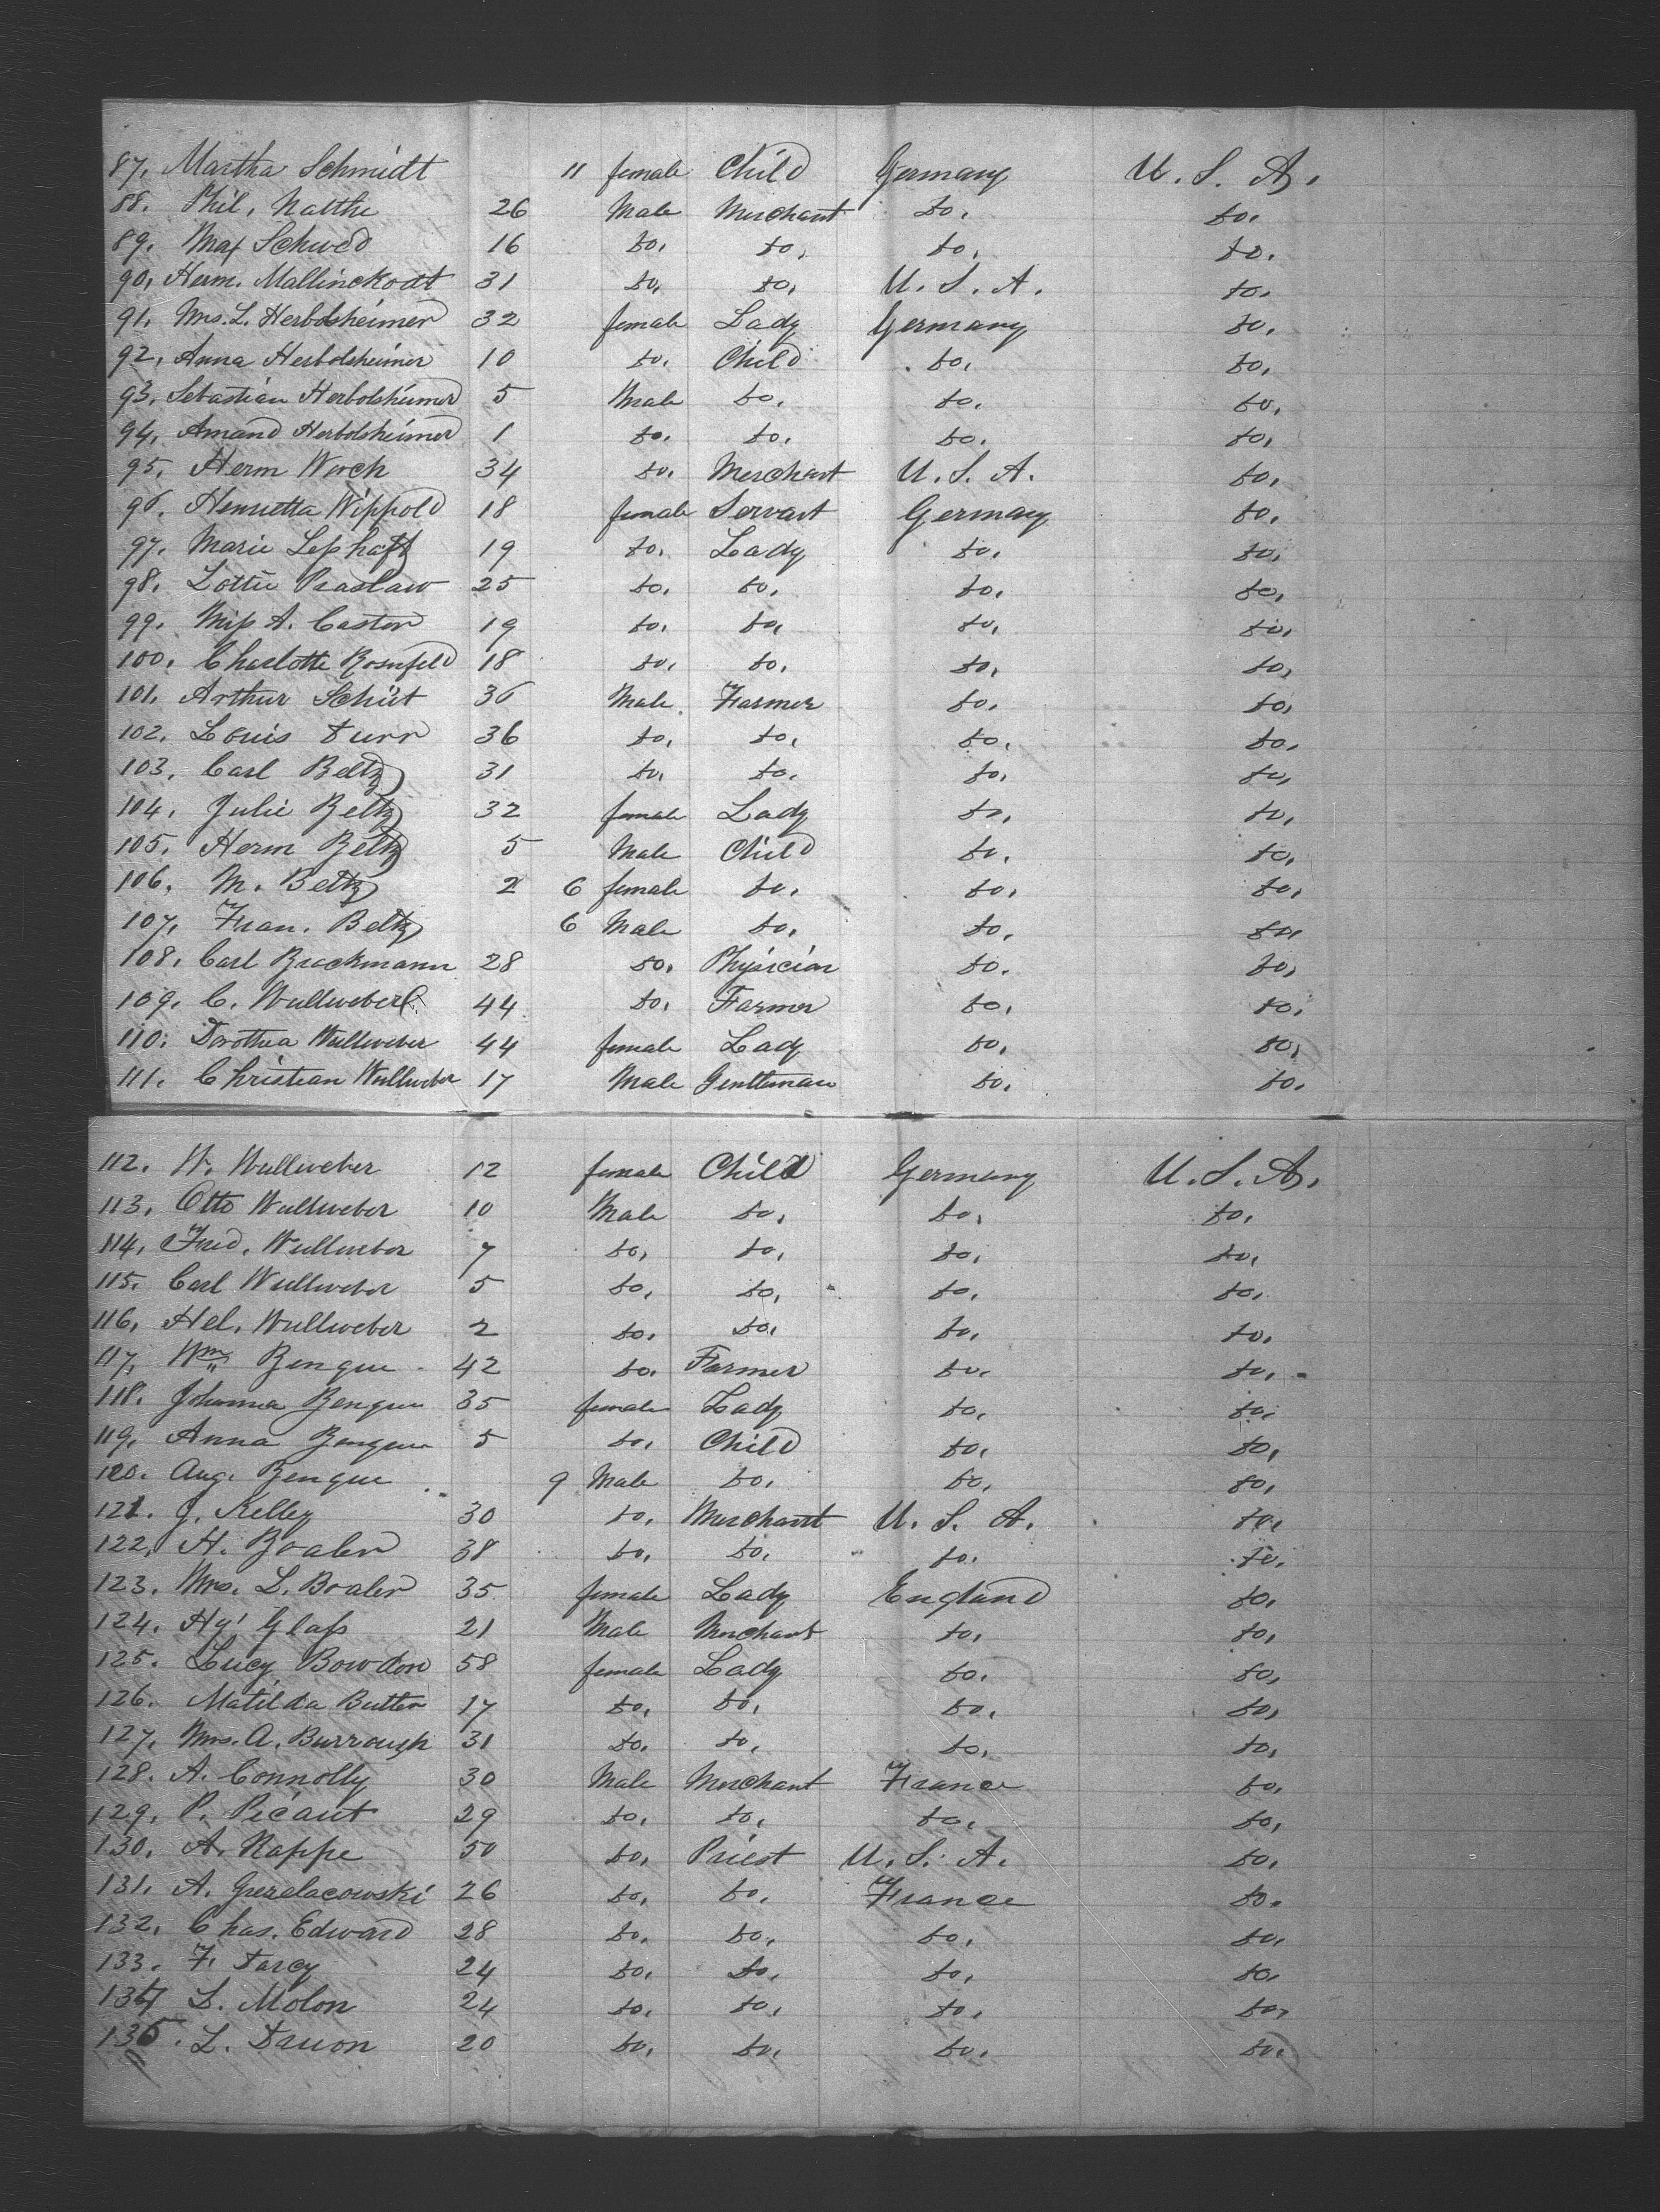 87. Martha Schmidt 11 female Child Germany U. S. A.
88. Phil. Natthe 26 Male Merchant do. do.
89. Max Schwed 16 do. do. do. do.
90. Herm. Mallinckodt 31 do. do. U. S. A. do.
91. Mrs. L. Herbolsheimer 32 female Lady Germany do.
92. Anna Herbolsheimer 10 do. Child do. do.
93. Sebastian Herbolsheimer 5 Male do. do. do.
94. Amand Herbolsheimer 1 do. do. do. do.
95. Herm Worch 34 do. Merchant U. S. A. do.
96. Henrietta Wippold 18 female Servant Germany do.
97. Marie Lephaft 19 do. Lady do. do.
98. Lottie Praslaw 25 do. do. do. do.
99. Miss A. Castor 19 do. do. do. do.
100. Charlotte Rosenfeld 18 do. do. do. do.
101. Arthur Schüt 36 Male Farmer do. do.
102. Louis Durr 36 do. do. do. do.
103. Carl Beltz 31 do. do. do. do.
104. Julie Beltz 32 female Lady do. do.
105. Herm Beltz 5 Male Child do. do.
106. M. Beltz 2 6 female do. do. do.
107. Fran. Beltz 6 Male do. do. do.
108. Carl Brackmann 28 do. Physician do. do.
109. C. Wullweber 44 do. Farmer do. do.
110. Dorothea Wullweber 44 female Lady do. do.
111. Christian Wullweber 17 Male Gentleman do. do.
112. W. Wullweber 12 female Child Germany U. S. A.
113. Otto Wullweber 10 Male do. do. do.
114. Fred. Wullweber 7 do. do. do. do.
115. Carl Wullweber 5 do. do. do. do.
116. Hel. Wullweber 2 do. do. do. do.
117. Wm Benque 42 do. Farmer do. do.
118. Johanna Benque 35 female Lady do. do.
119. Anna Benque 5 do. Child do. do.
120. Aug. Benque 9 Male do. do. do.
121. J. Kelley 30 do. Merchant U. S. A. do.
122. H. Boaler 38 do. do. do. do.
123. Mrs. L. Boaler 35 female Lady England do.
124. Hy. Glass 21 Male Merchant do. do.
125. Lucy Bowdon 58 female Lady do. do.
126. Matilda Butler 17 do. do. do. do.
127. Mrs. A. Burrough 31 do. do. do. do.
128. A. Connolly 30 Male Merchant France do.
129. P. Picaut 29 do. do. do. do.
130. A. Rappe 50 do. Priest U. S. A. do.
131. A. Gurzlacowski 26 do. do. France do.
132. Chas. Edward 28 do. do. do. do.
133. F. Darcy 24 do. do. do. do.
134 L. Molon 24 do. do. do. do.
135. L. Druon 20 do. do. do. do.